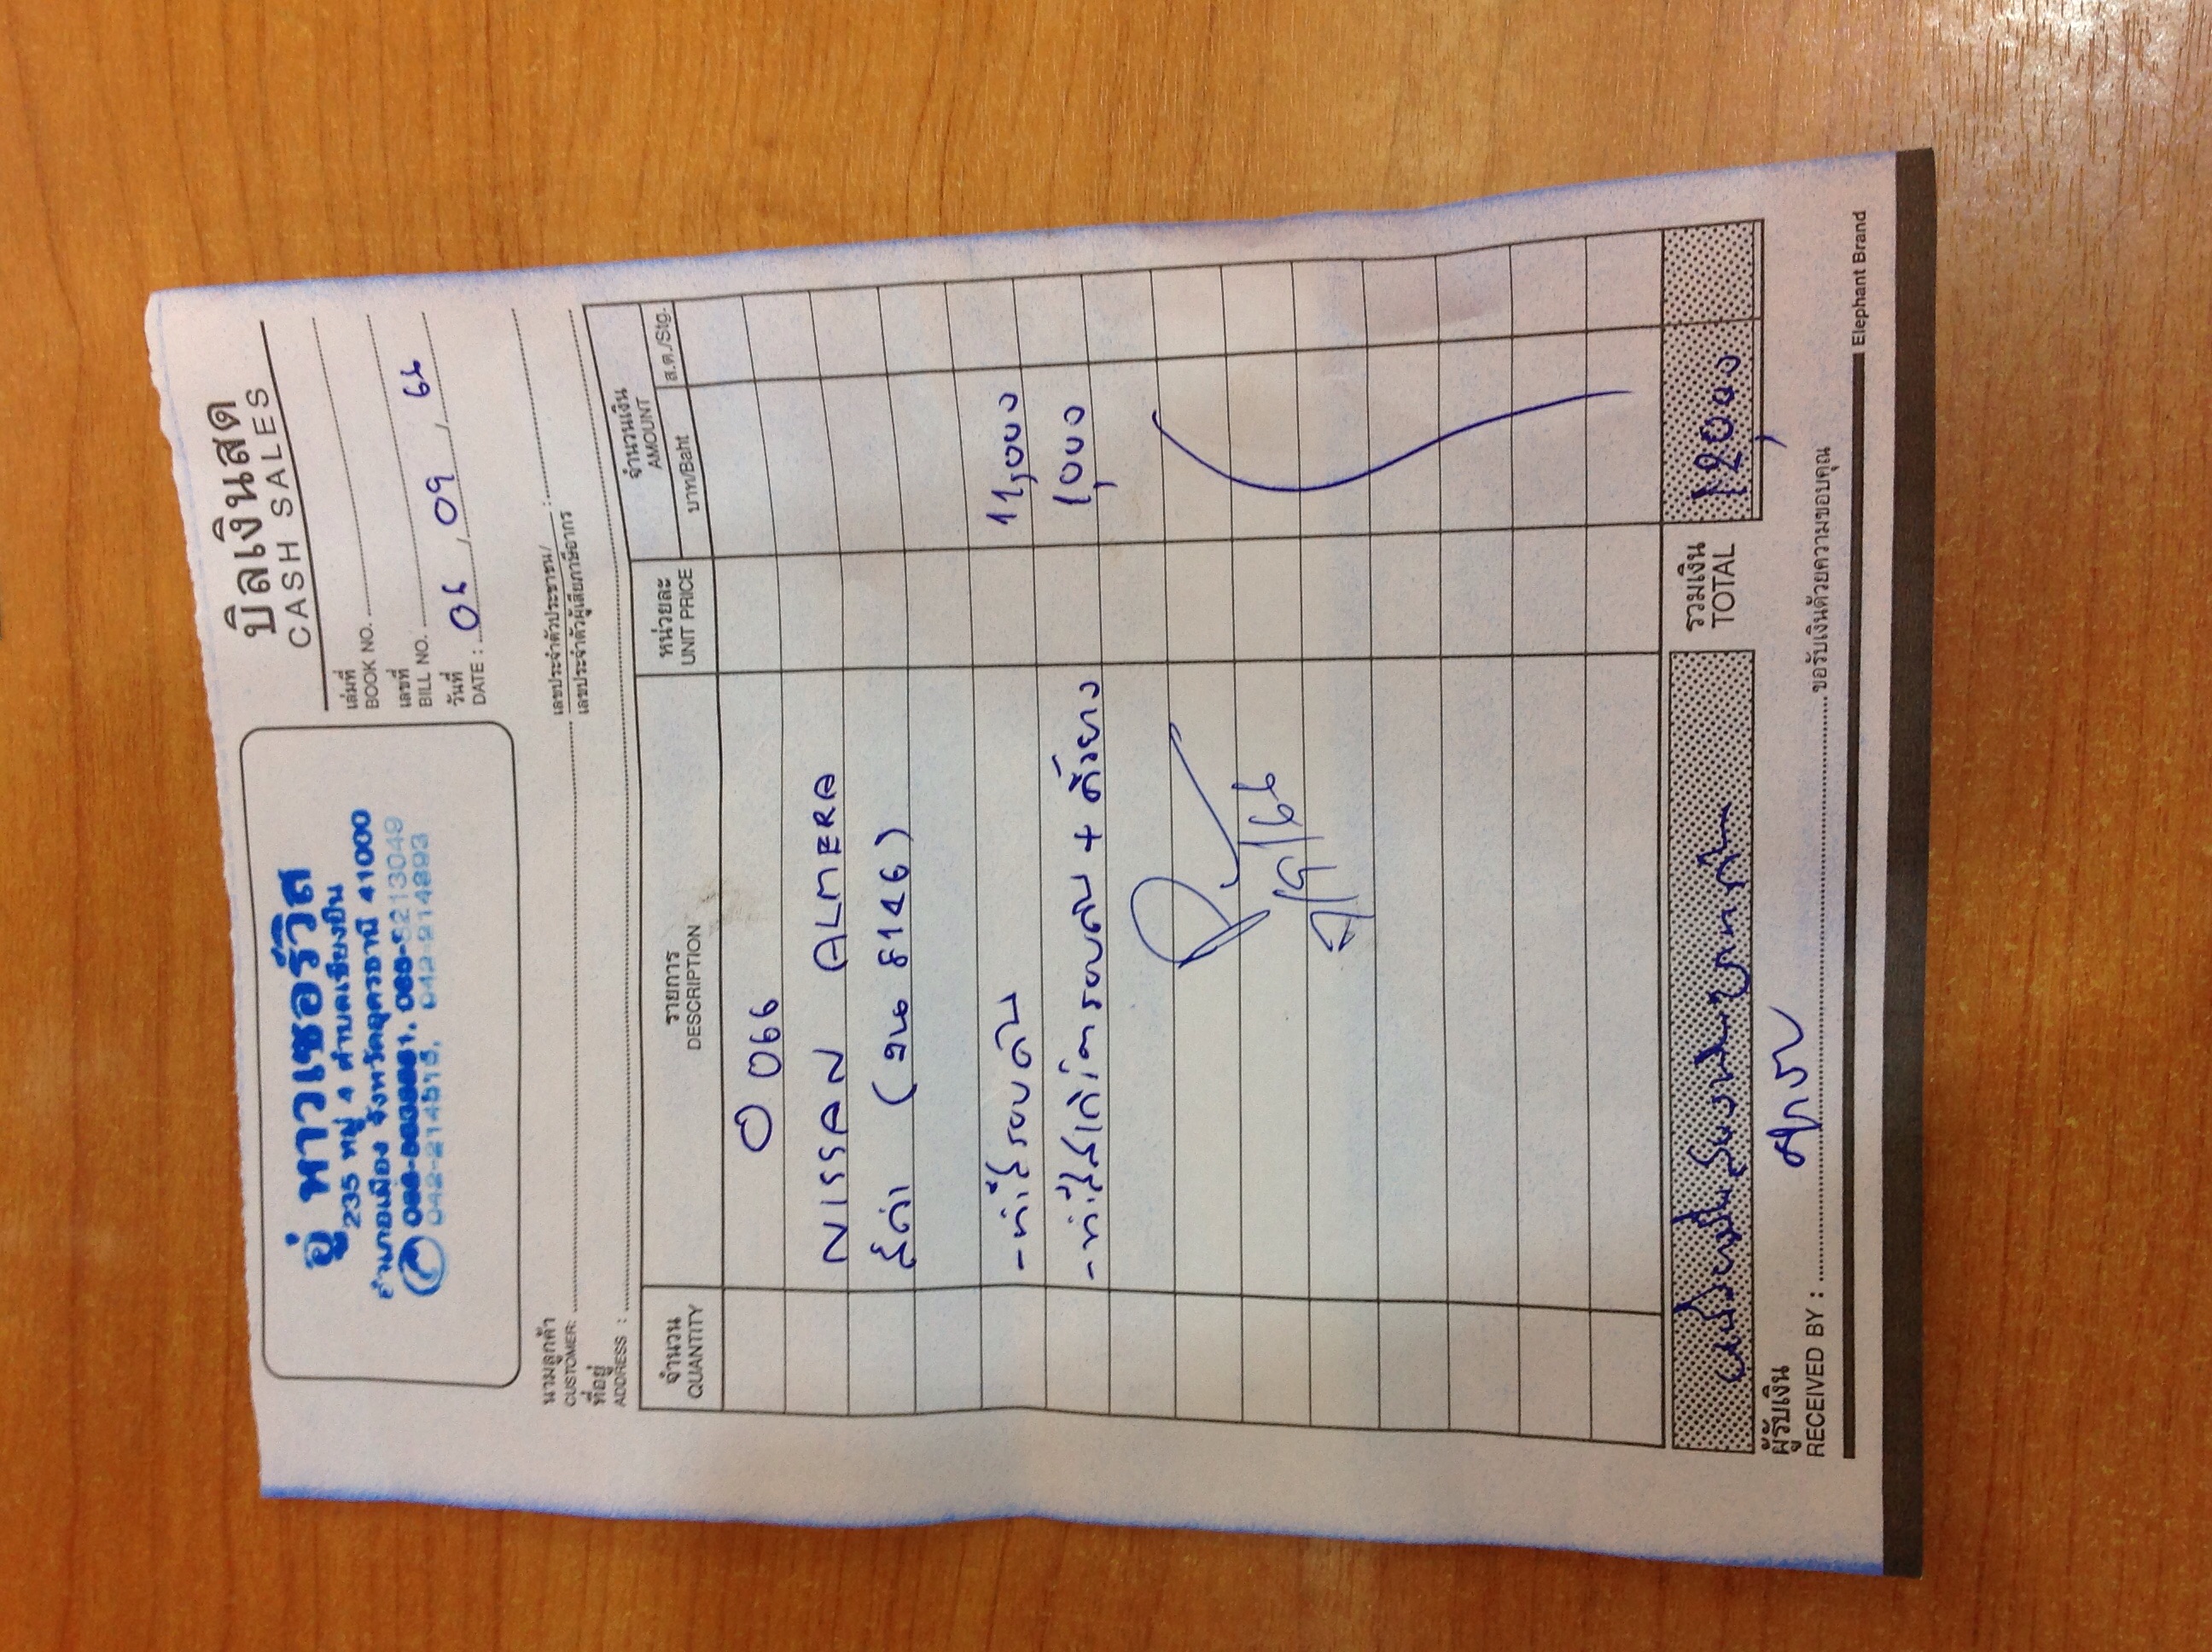 บิลเงินสด
CASH SALES
อู่ หาวเซอร์วิส
235 หมู่ 4 ตำบลเชียงยืน
อำเภอเมือง จังหวัดอุดรธานี 41000
042-214893
เล่มที่
BOOK NO.
เลขที่
BILL NO.
วันที่
DATE : 06 / 09 / 66
นามลูกค้า
CUSTOMER:
เลขประจำตัวประชาชน/
เลขประจำตัวผู้เสียภาษีอากร :
ที่อยู่
ADDRESS :
จำนวน
QUANTITY
รายการ
DESCRIPTION
หน่วยละ
UNIT PRICE
จำนวนเงิน
AMOUNT
บาท/Baht
ส.ต./Stg.
O 066
NISSAN ALMERA
สีดำ (ขน 8146)
- ทำสีรอบคัน 11,000
- ทำสีสเกิร์ตรอบคัน + คิ้วยาง 1,000
7/9/66
รวมเงิน
TOTAL
12,000
ผู้รับเงิน
RECEIVED BY :
ขอรับเงินด้วยความขอบคุณ
Elephant Brand